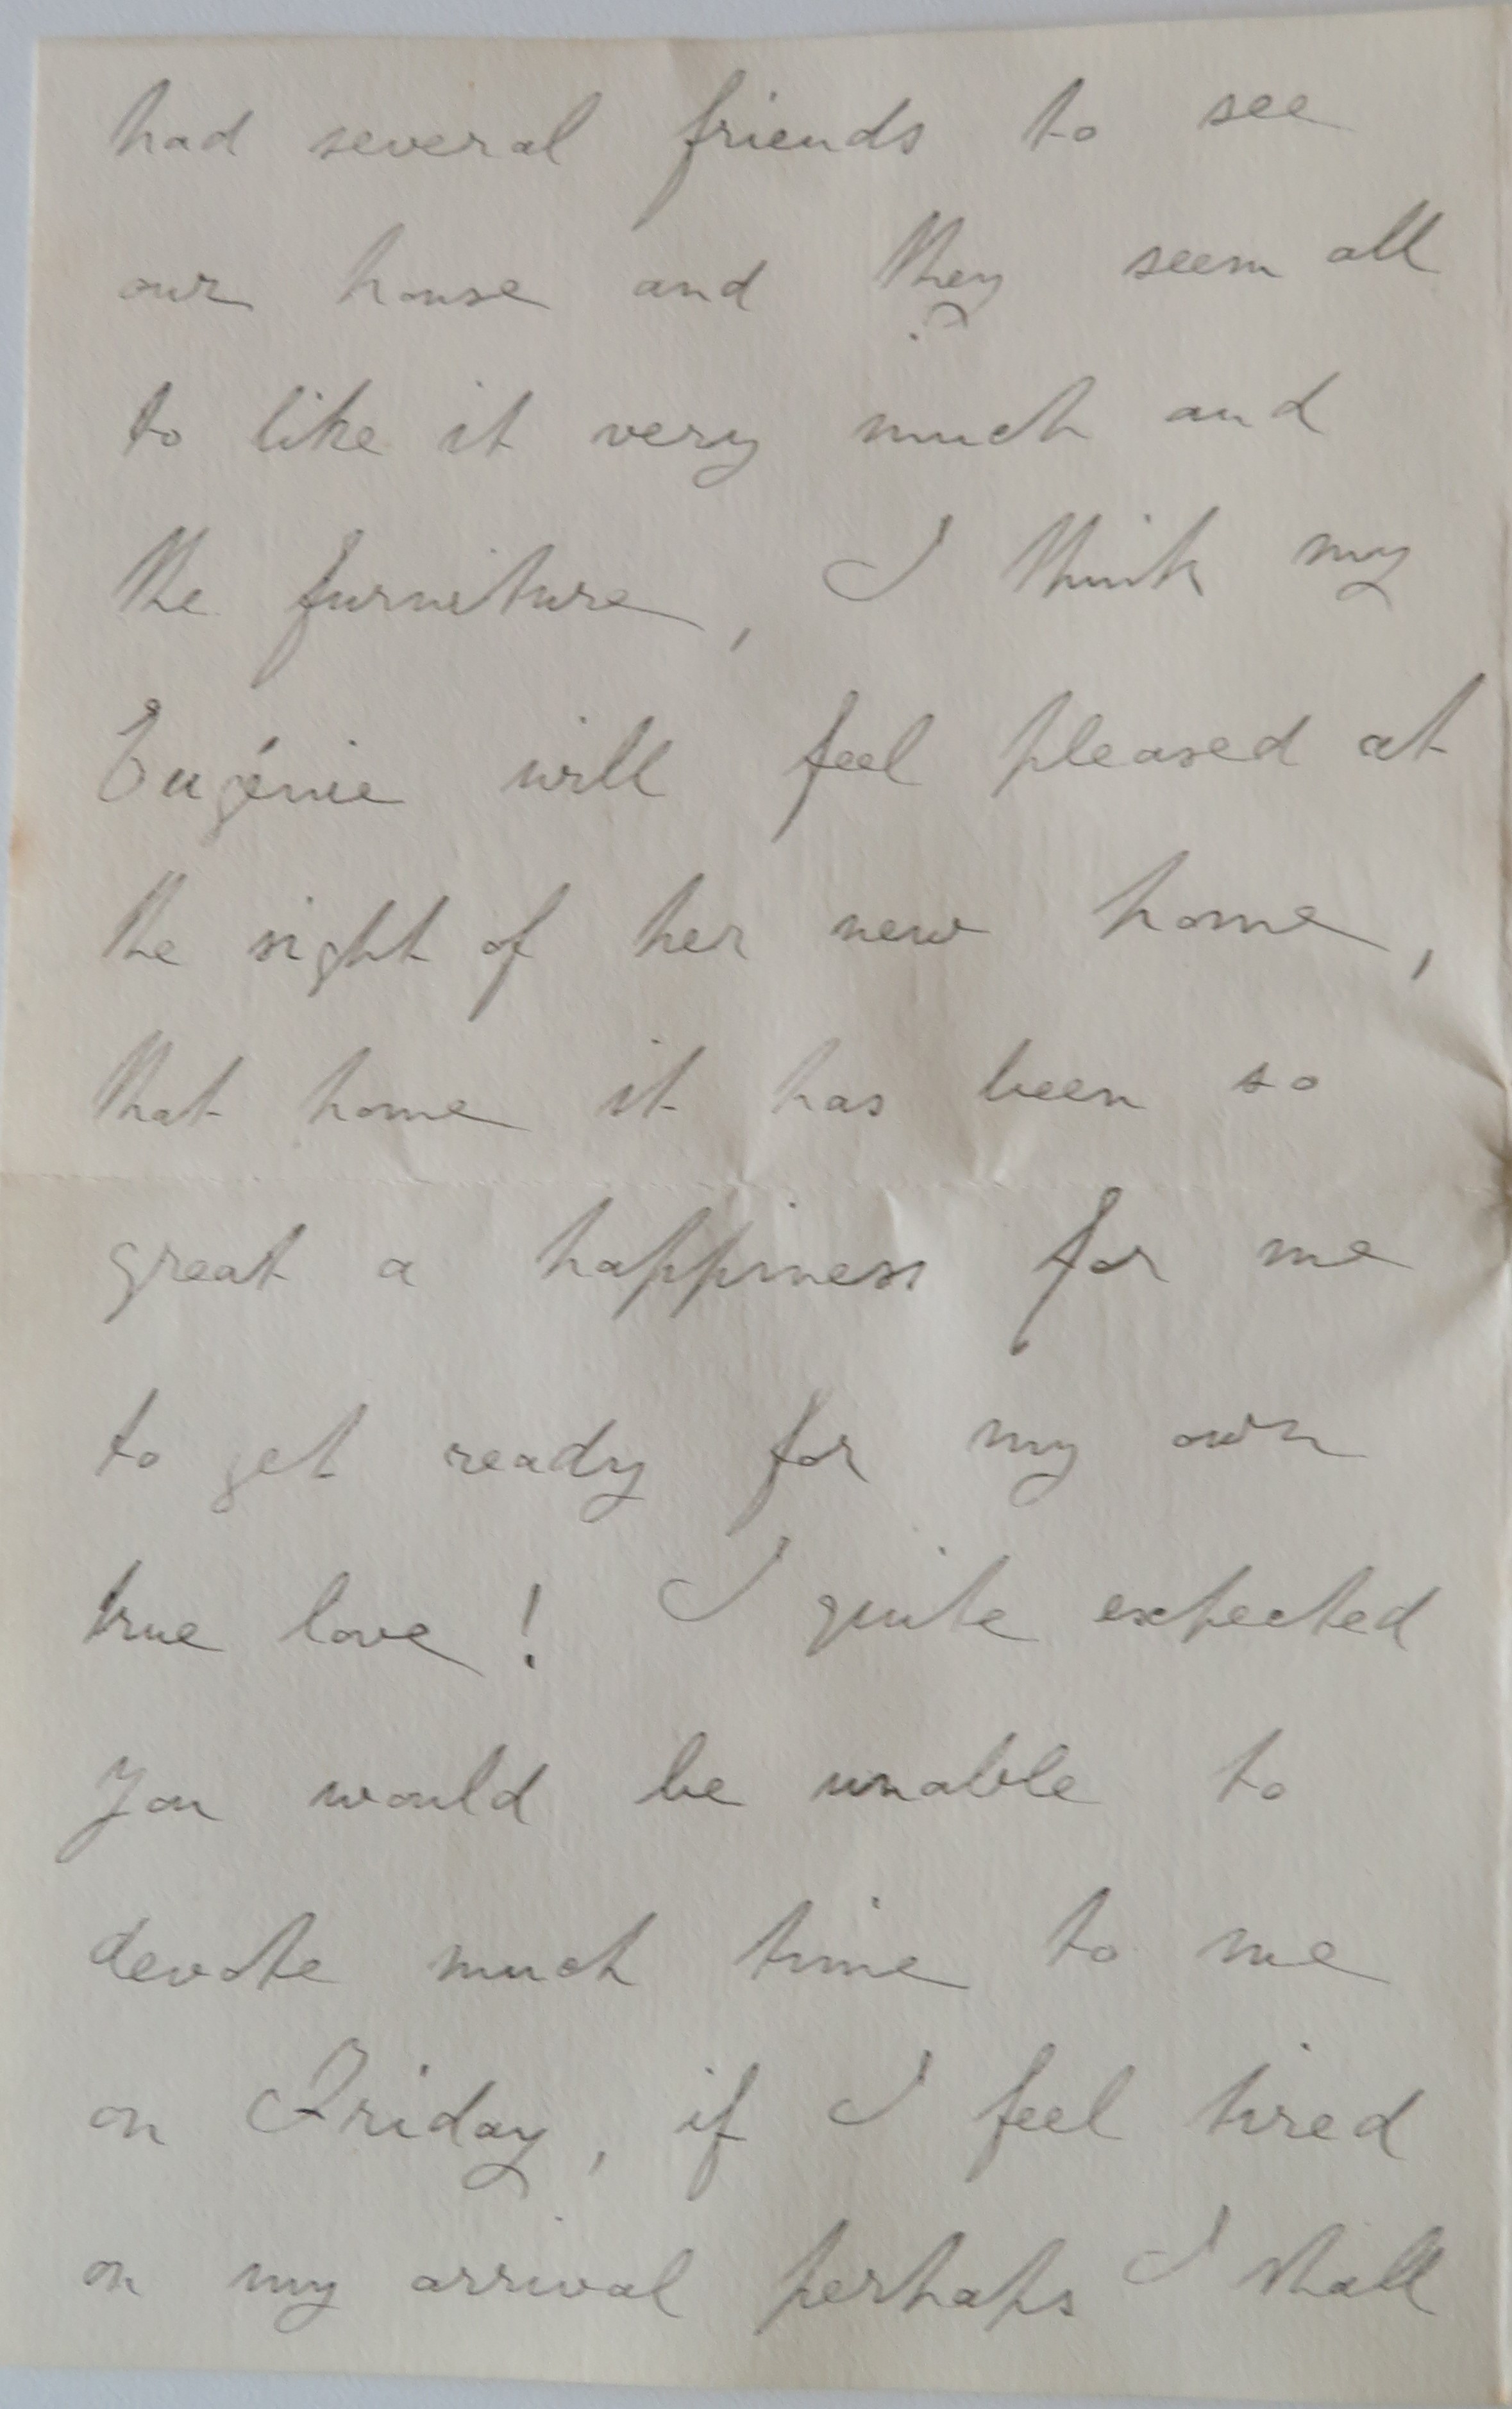 had several friends to see
our house and they seem all
to like it very much and
the furniture, I think my
Eugénie will feel pleased at
the sight of her new home,
that home it has been so
great a happiness for me
to get ready for my own
true love! I quite expected
you would be unable to
devote much time to me
on Friday, if I feel tired
on my arrival perhaps I shall